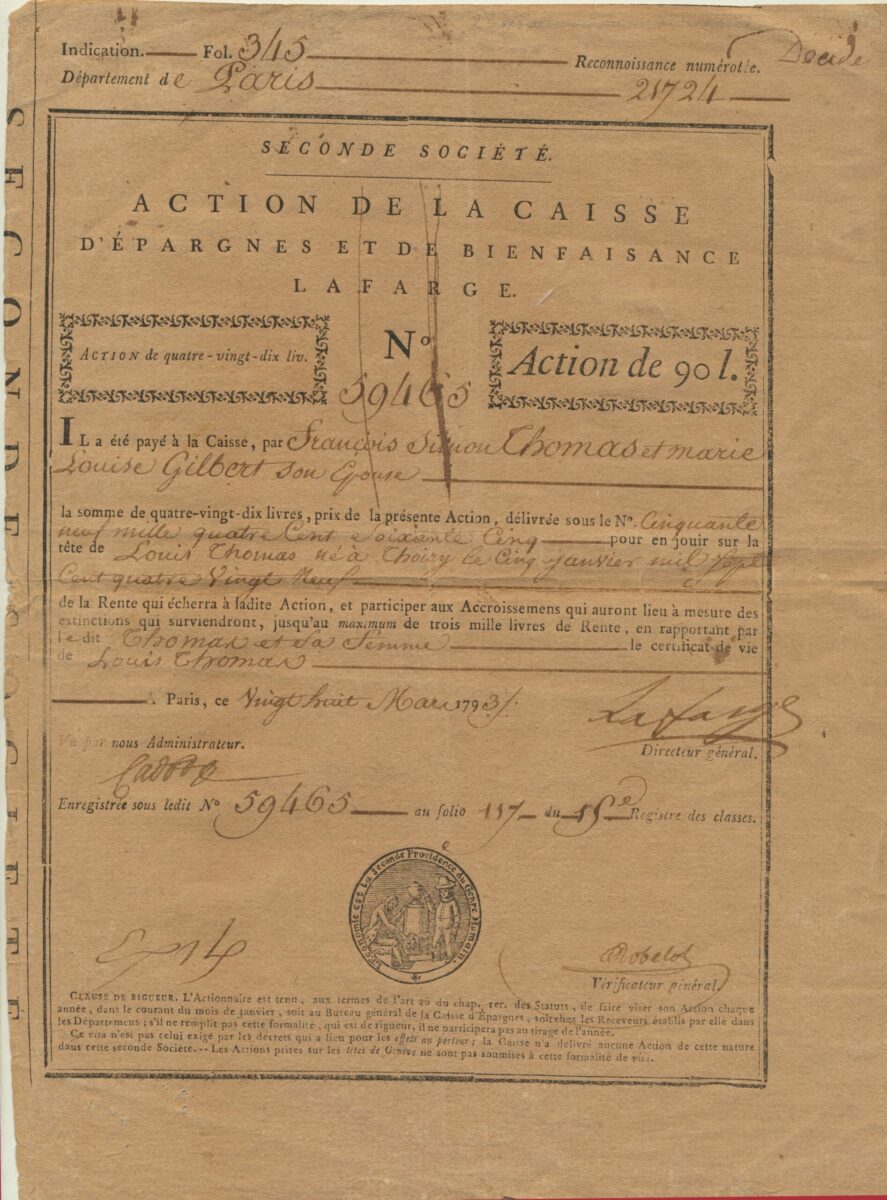 Indication. Fol. 345
Reconnoissance numérotée. Décidé
Département de Paris 21724
SECONDE SOCIÉTÉ
SECONDE SOCIÉTÉ.
ACTION DE LA CAISSE
D'ÉPARGNES ET DE BIENFAISANCE
LAFARGE.
ACTION de quatre-vingt-dix liv. No Action de 90 l.
59465
IL a été payé à la Caisse, par François Simon Thomas et marie
Louise Gilbert son Epouse
la somme de quatre-vingt-dix livres, prix de la présente Action, délivrée sous le No. Cinquante
neuf mille quatre Cent Soixante Cinq pour en jouir sur la
tête de Louis Thomas né à Thoiry le Cinq janvier mil Sept
Cent quatre Vingt Neuf
de la Rente qui écherra à ladite Action, et participer aux Accroissemens qui auront lieu à mesure des
extinctions qui surviendront, jusqu'au maximum de trois mille livres de Rente, en rapportant par
le dit Thomas et Sa femme le certificat de vie
de Louis Thomas
A Paris, ce Vingt huit Mars 1793
Lafarge
Vu par nous Administrateur. Directeur général.
Enregistrée sous ledit No 59465 au folio 117 du 15e Registre des classes.
L'économie est la seconde Providence du Genre Humain.
Robelot
Vérificateur général.
CLAUSE DE RIGUEUR. L'Actionnaire est tenu, aux termes de l'art 26 du chap. 1er. des Statuts, de faire viser son Action chaque
année, dans le courant du mois de janvier, soit au Bureau général de la Caisse d'Épargnes, soit chez les Receveurs établis par elle dans
les Département; s'il ne remplit pas cette formalité, qui est de rigueur, il ne participera pas au tirage de l'année.
Ce visa n'est pas celui exigé par les decrets qui a lieu pour les effets au porteur; la Caisse n'a délivré aucune Action de cette nature
dans cette seconde Société. -- Les Actions prises sur les têtes de Genève ne sont pas soumises à cette formalité de visa.